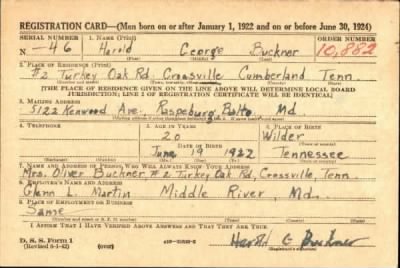 REGISTRATION CARD—(Men born on or after January 1, 1922 and on or before June 30, 1924)
SERIAL NUMBER 1. NAME (Print) ORDER NUMBER
N -46 Harold George Buckner 10,882
(First) (Middle) (Last)
2. PLACE OF RESIDENCE (Print)
#2 Turkey Oak Rd. Crossville Cumberland Tenn.
[THE PLACE OF RESIDENCE GIVEN ON THE LINE ABOVE WILL DETERMINE LOCAL BOARD
JURISDICTION; LINE 2 OF REGISTRATION CERTIFICATE WILL BE IDENTICAL]
3. MAILING ADDRESS
5122 Kenwood Ave. Raspeburg Balto. Md.
4. TELEPHONE 5. AGE IN YEARS 6. PLACE OF BIRTH
20 Wilder
DATE OF BIRTH
June 19 1922 Tennessee
(Exchange) (Number) (Mo.) (Day) (Yr.) (State or country)
7. NAME AND ADDRESS OF PERSON WHO WILL ALWAYS KNOW YOUR ADDRESS
Mrs. Oliver Buckner #2 Turkey Oak Rd, Crossville, Tenn.
8. EMPLOYER'S NAME AND ADDRESS
Glenn L. Martin Middle River, Md.
9. PLACE OF EMPLOYMENT OR BUSINESS
Same
I AFFIRM THAT I HAVE VERIFIED ABOVE ANSWERS AND THAT THEY ARE TRUE.
D. S. S. Form 1
(Revised 6-1-42) (over) Harold G Buckner